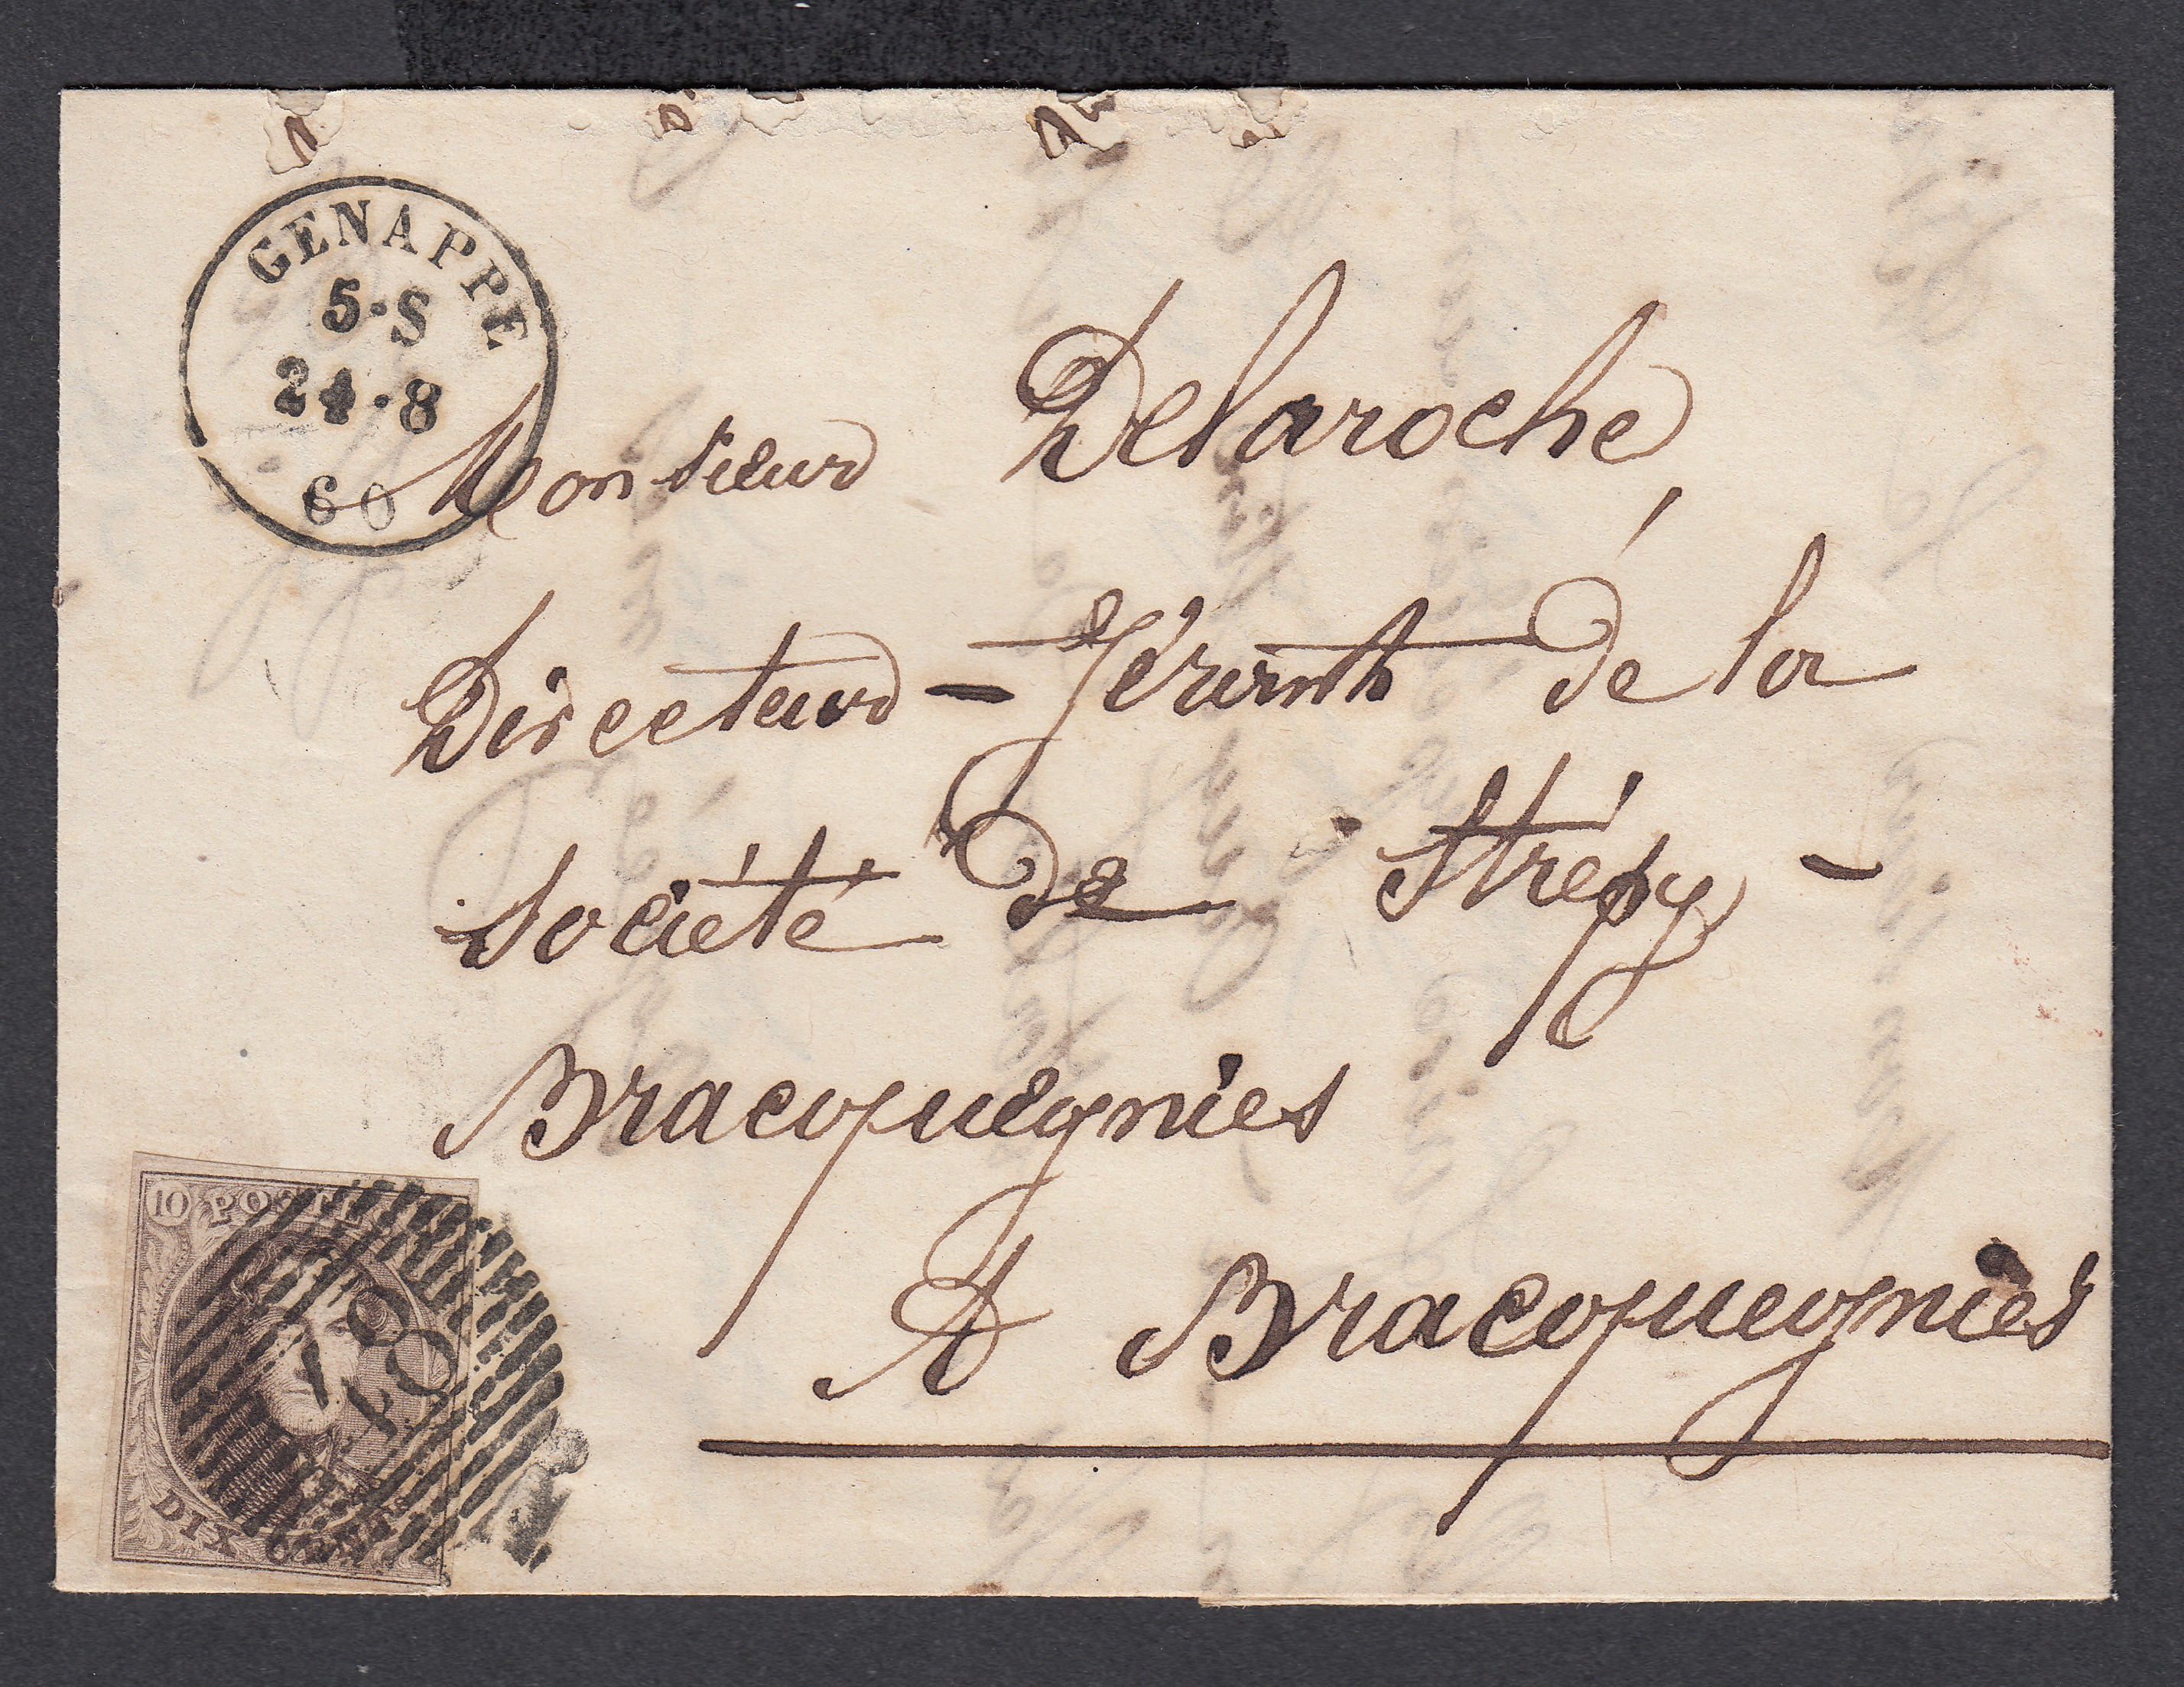 GENAPPE
5·S
24·8
60
Monsieur Delaroche
Directeur-Gérant de la
Société de Strépy-
Bracquegnies
A Bracquegnies
10 POSTES
DIX CENTS